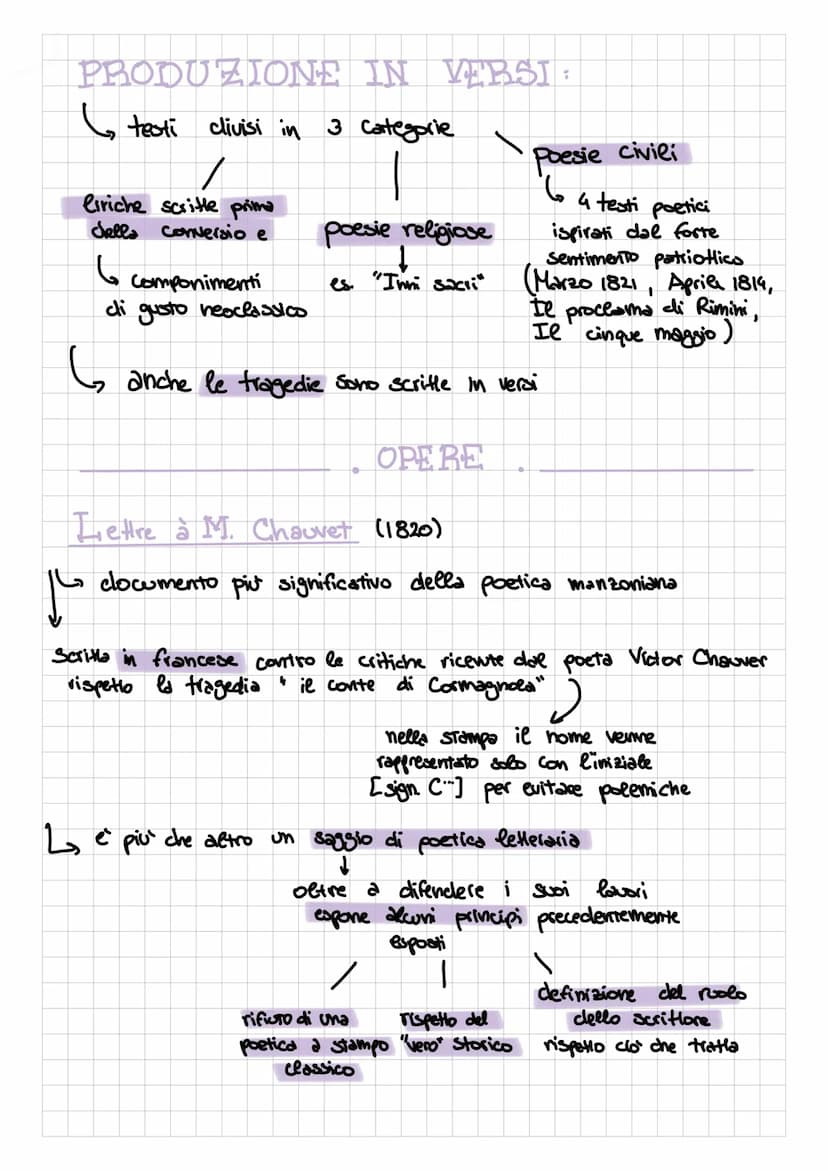 PRODUZIONE IN VERSI:
testi divisi in 3 categorie
liriche scritte prima
della conversio e
componimenti
di gusto neoclassico
poesie religiose
es. "Inni sacri"
poesie civili
4 testi poetici
ispirati dal forte
sentimento patriottico
(Marzo 1821, Aprile 1814,
Il proclama di Rimini,
Il cinque maggio)
anche le tragedie sono scritte in versi
. OPERE .
Lettre à M. Chauvet (1820)
documento più significativo della poetica manzoniana
Scritta in francese contro le critiche ricevute dal poeta Victor Chauvet
rispetto la tragedia "il conte di Carmagnola"
nella stampa il nome venne
rappresentato solo con l'iniziale
[sign C...] per evitare polemiche
e' piu' che altro un saggio di poetica letteraria
oltre a difendere i suoi lavori
espone alcuni principi precedentemente
esposti
rifiuto di una
poetica a stampo
classico
rispetto del
"vero" storico
definizione del ruolo
dello scrittore
rispetto cio' che tratta